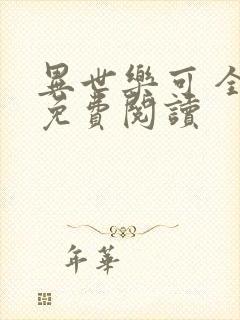 異世樂可全
免費閱讀
年華